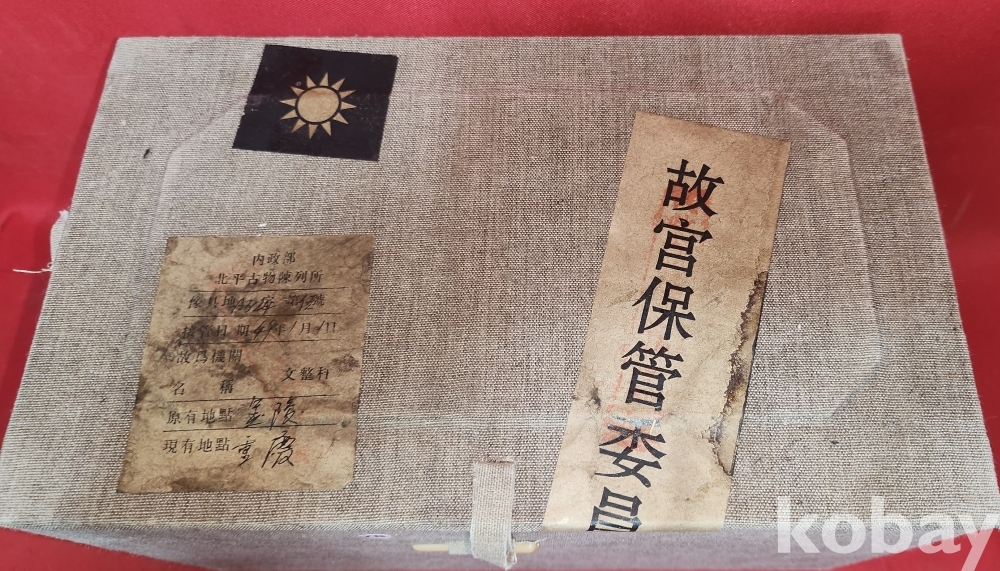 內政部
北平古物陳列所
接管日期41年1月1日
文整科
名稱
原有地點 金陵
現有地點 重慶
故宮保管委員
kobay